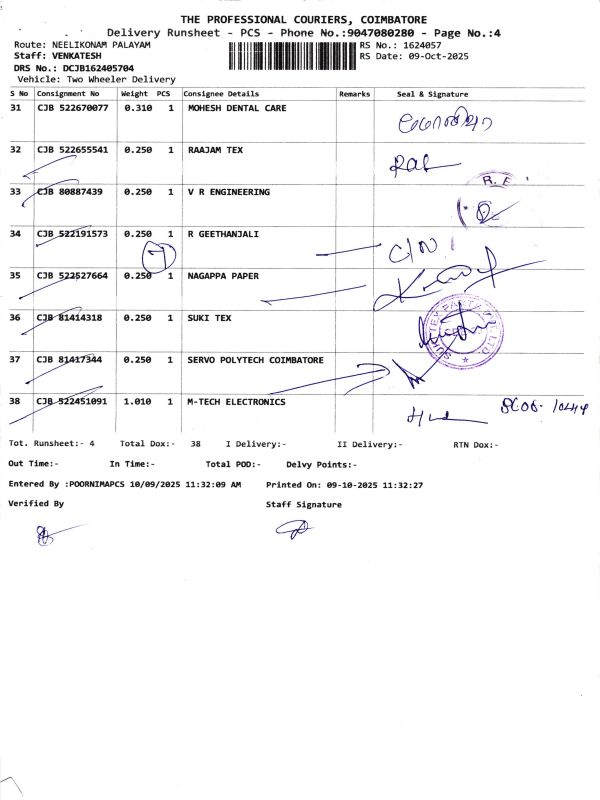 THE PROFESSIONAL COURIERS, COIMBATORE
Delivery Runsheet - PCS - Phone No.:9047080280 - Page No.:4
Route: NEELIKONAM PALAYAM RS No.: 1624057
Staff: VENKATESH RS Date: 09-Oct-2025
DRS No.: DCJB162405704
Vehicle: Two Wheeler Delivery
S No Consignment No Weight PCS Consignee Details Remarks Seal & Signature
31 CJB 522670077 0.310 1 MOHESH DENTAL CARE
32 CJB 522655541 0.250 1 RAAJAM TEX
33 CJB 80887439 0.250 1 V R ENGINEERING
R. E
34 CJB 522191573 0.250 1 R GEETHANJALI
35 CJB 522527664 0.250 1 NAGAPPA PAPER
36 CJB 81414318 0.250 1 SUKI TEX
37 CJB 81417344 0.250 1 SERVO POLYTECH COIMBATORE
38 CJB 522451091 1.010 1 M-TECH ELECTRONICS
Tot. Runsheet:- 4 Total Dox:- 38 I Delivery:- II Delivery:- RTN Dox:-
Out Time:- In Time:- Total POD:- Delvy Points:-
Entered By :POORNIMAPCS 10/09/2025 11:32:09 AM Printed On: 09-10-2025 11:32:27
Verified By Staff Signature